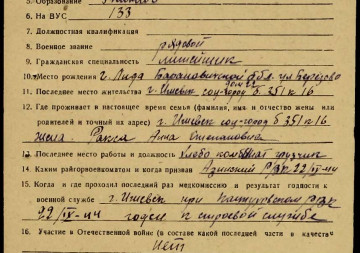 5. Образование
6. На ВУС 133
7. Должностная квалификация
8. Военное звание рядовой
9. Гражданская специальность
10. Место рождения г. Лида Барановичской обл. ул.
11. Последнее место жительства г. Ижевск соц-город б. 351 к 16
12. Где проживает в настоящее время семья (фамилия, имя и отчество жены или
родителей и точный их адрес) г. Ижевск соц-город б 351 к 16
жена Анна Степановна
13. Последнее место работы и должность Хлебо комбинат грузчик
14. Каким райгорвоенкоматом и когда призван Азинский РВК 22/IX-44
15. Когда и где проходил последний раз медкомиссию и результат годности к
военной службе г. Ижевск при РВК
22/IX-44 годен к строевой службе
16. Участие в Отечественной войне (в составе какой последней части и в качестве
нет